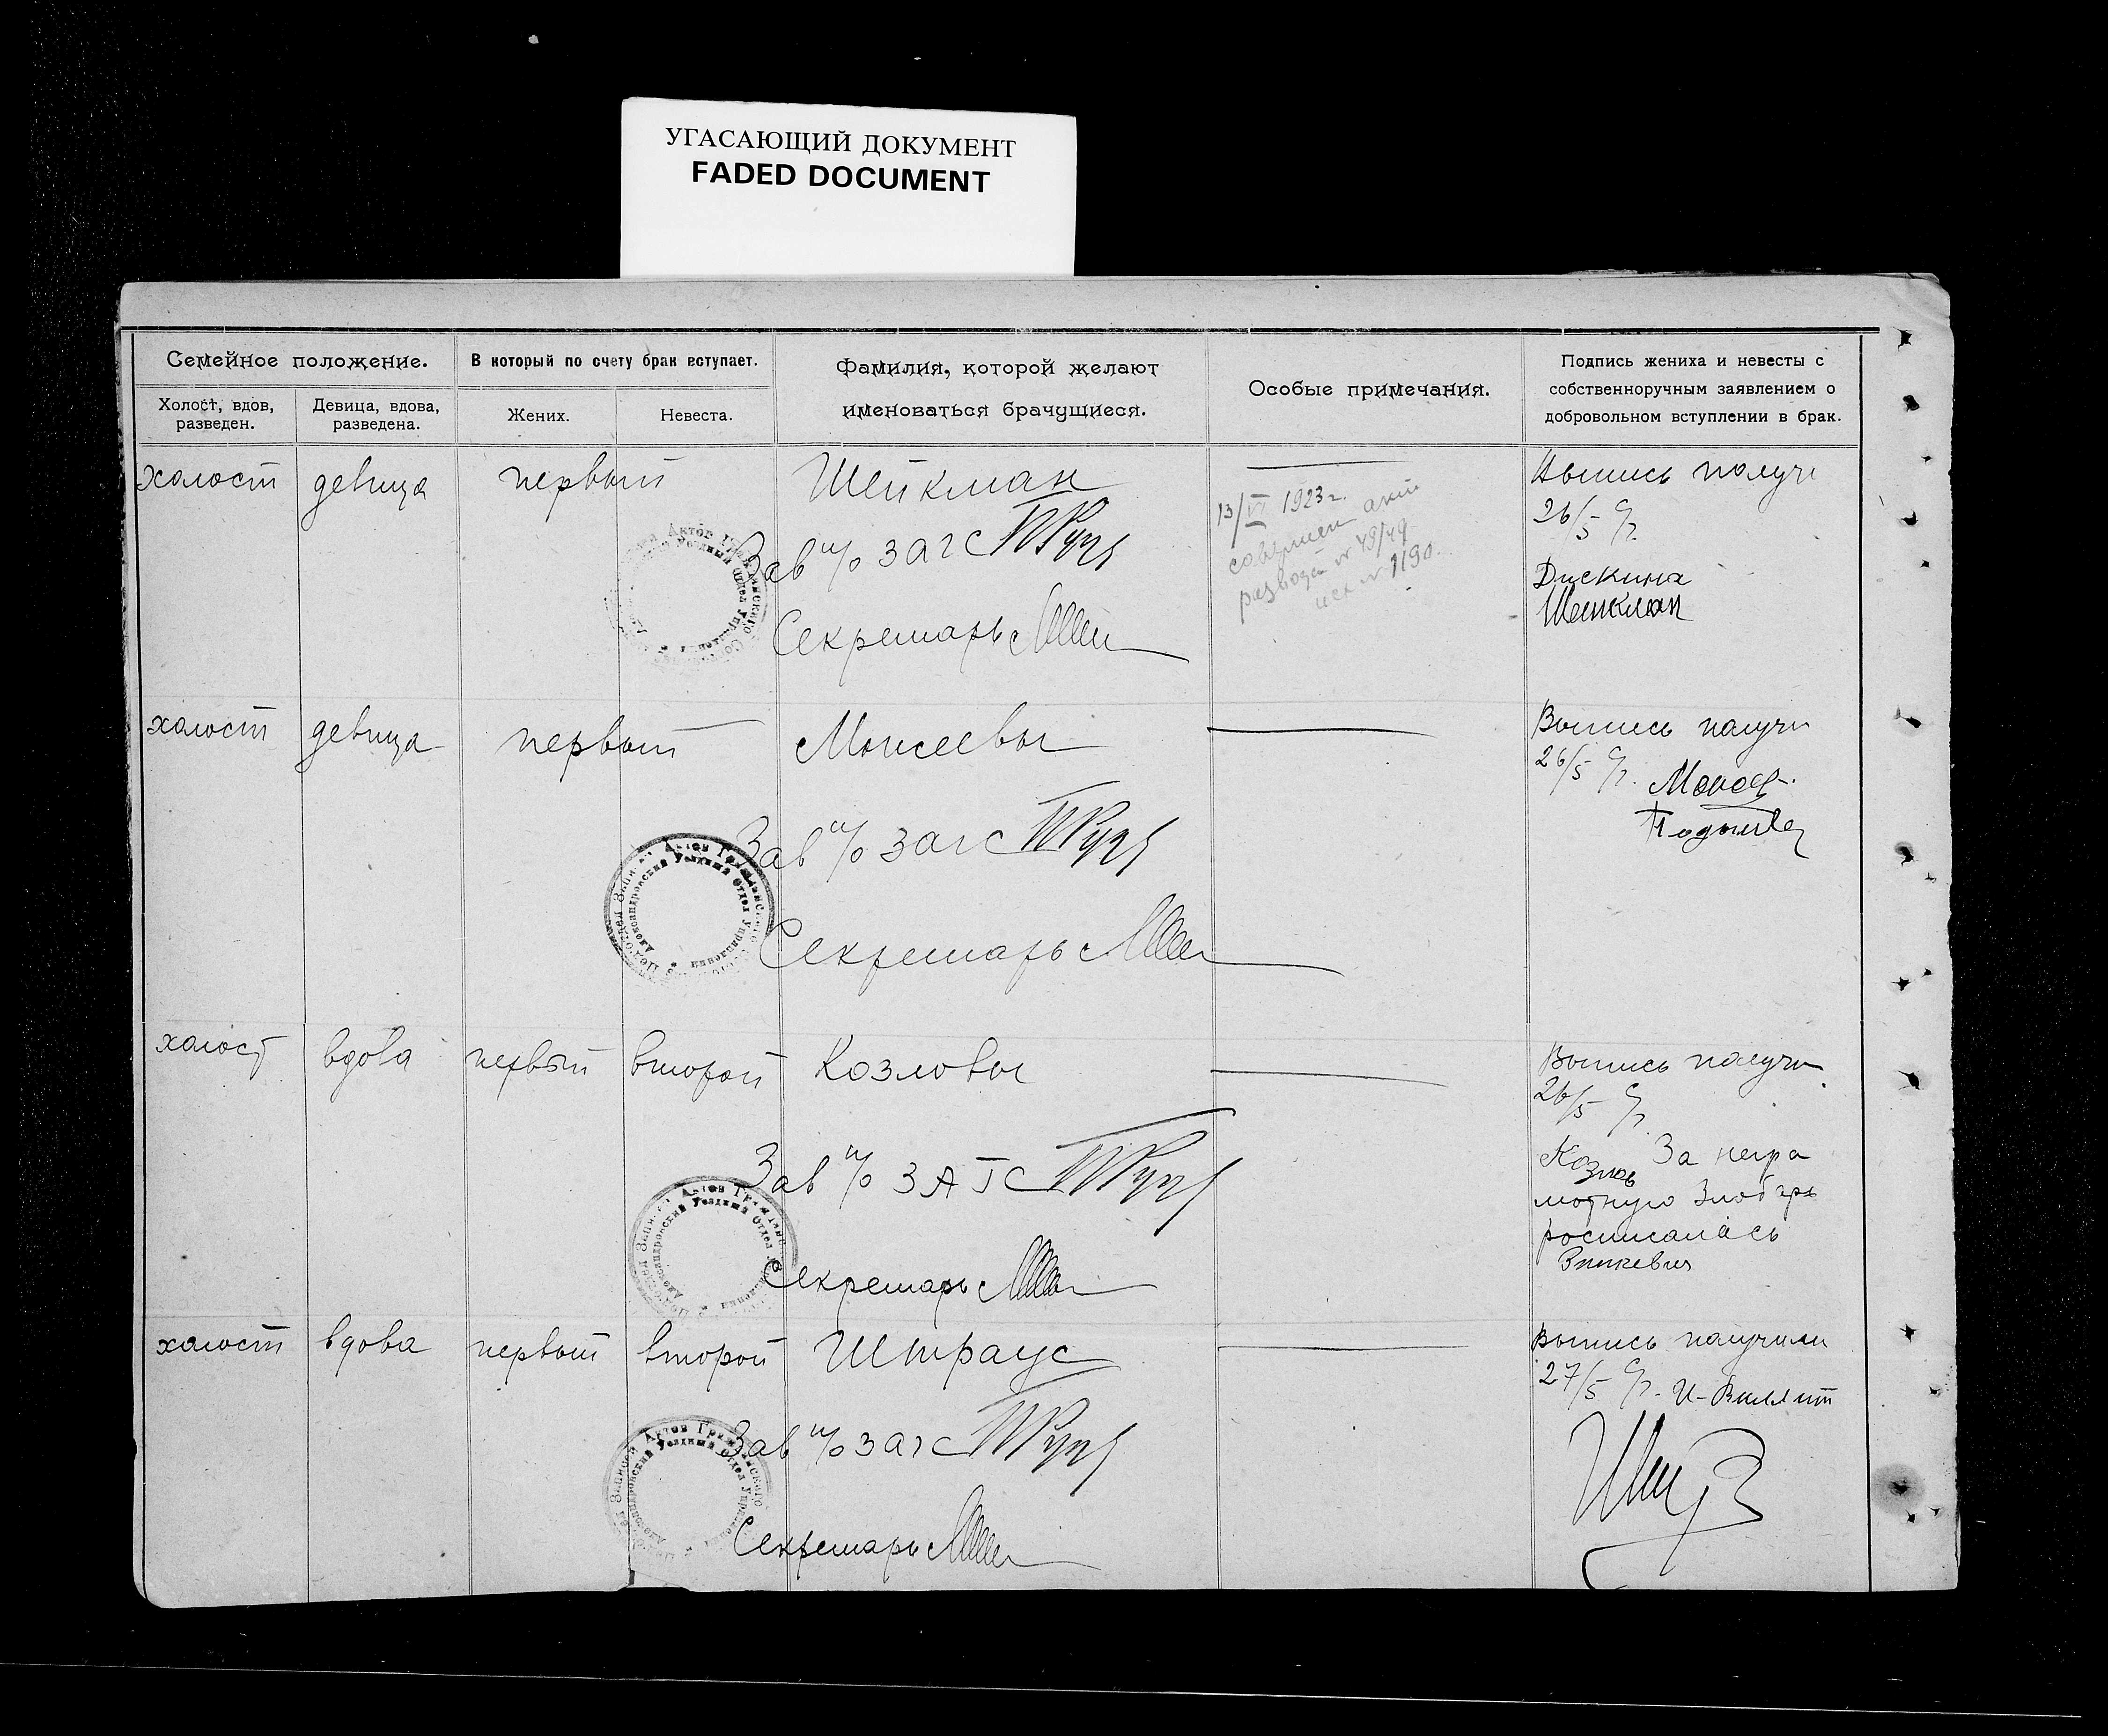 УГАСАЮЩИЙ ДОКУМЕНТ
FADED DOCUMENT
Семейное положение.
В который по счету брак вступает.
Фамилия, которой желают
именоваться брачущиеся.
Особые примечания.
Подпись жениха и невесты с
собственноручным заявлением о
добровольном вступлении в брак.
Холост, вдов,
разведен.
Девица, вдова,
разведена.
Жених.
Невеста.
холост девица первый Шейкман
Зав п/о загс
Секретарь
13/VI 1923 г.
совершен акт
развода № 49/49
исх № 1190.
Выпись получи
26/5
Дискина
Шейкман
холост девица первый Моисеевы
Зав п/о загс
Секретарь
Выпись получи
26/5
холост вдова первый второй Козловы
Зав п/о ЗАГС
Секретарь
Выпись получи
26/5
Козлов За негра
мотную
росписалась
холост вдова первый второй Штраус
Зав п/о загс
Секретарь
Выпись получили
27/5